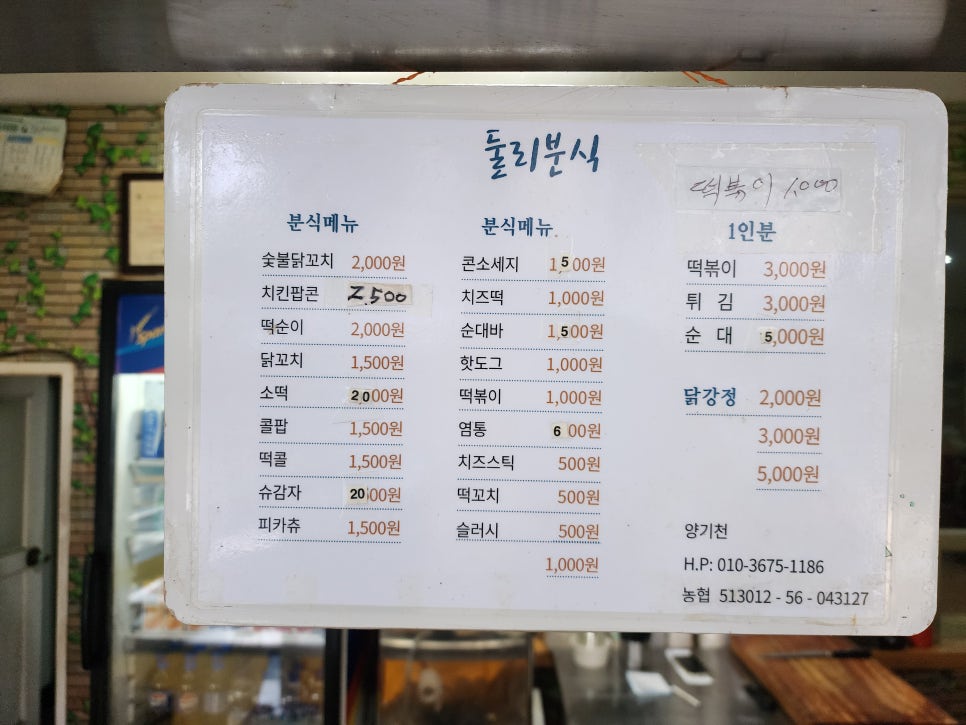 둘리분식
떡볶이 1,000
분식메뉴
숯불닭꼬치 2,000원
치킨팝콘 2,500
떡순이 2,000원
닭꼬치 1,500원
소떡 2000원
콜팝 1,500원
떡콜 1,500원
슈감자 2000원
피카츄 1,500원
분식메뉴
콘소세지 1,500원
치즈떡 1,000원
순대바 1,500원
핫도그 1,000원
떡볶이 1,000원
염통 600원
치즈스틱 500원
떡꼬치 500원
슬러시 500원
1,000원
1인분
떡볶이 3,000원
튀 김 3,000원
순 대 5,000원
닭강정 2,000원
3,000원
5,000원
양기천
H.P: 010-3675-1186
농협 513012 - 56 - 043127